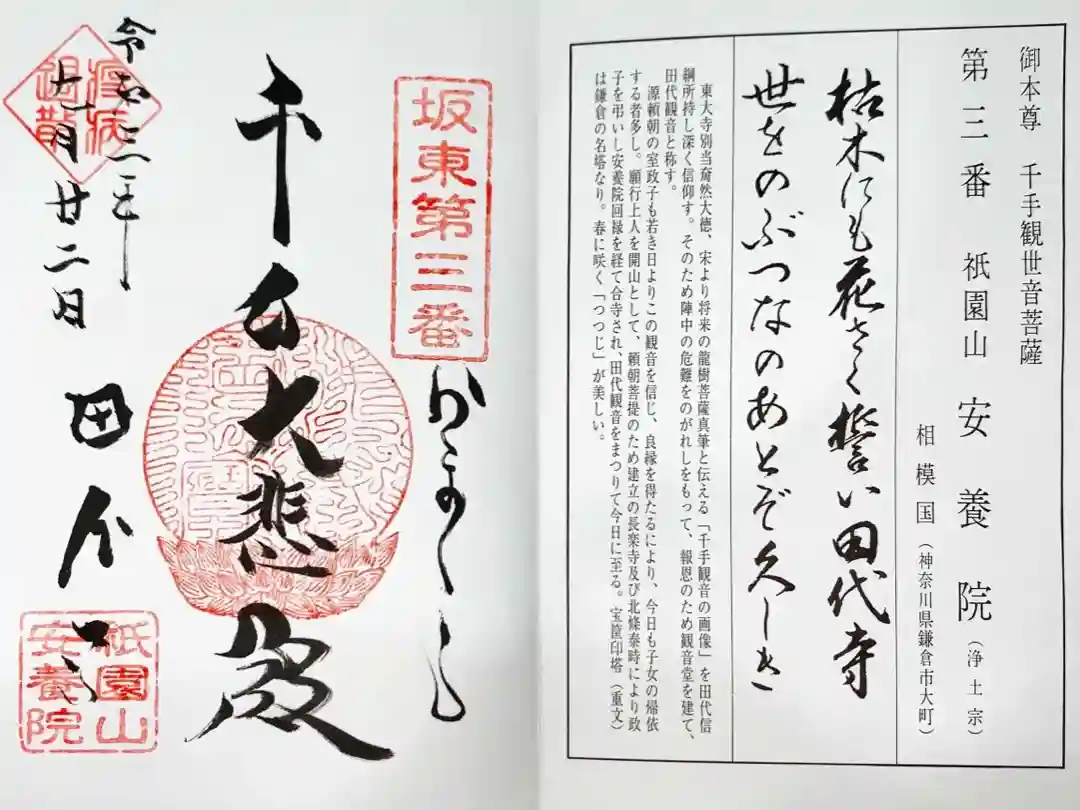 御本尊 千手観世音菩薩
第三番 祇園山 安養院(浄土宗)
相模国(神奈川県鎌倉市大町)
枯木にも花さく誓い田代寺
世をのぶつなのあとぞ久しき
東大寺別当奝然大徳、宋より将来の龍樹菩薩真筆と伝える「千手観音の画像」を田代信
綱所持し深く信仰す。そのため陣中の危難をのがれしをもって、報恩のため観音堂を建て、
田代観音と称す。
源頼朝の室政子も若き日よりこの観音を信じ、良縁を得たるにより、今日も子女の帰依
する者多し。願行上人を開山として、頼朝菩提のため建立の長楽寺及び北條泰時により政
子を弔いし安養院回録を経て合寺され、田代観音をまつりて今日に至る。宝筐印塔(重文)
は鎌倉の名塔なり。春に咲く「つつじ」が美しい。
坂東第三番
千手大悲殿
令和三年
十一月廿二日
疫病
退散
田代
祇園山
安養院